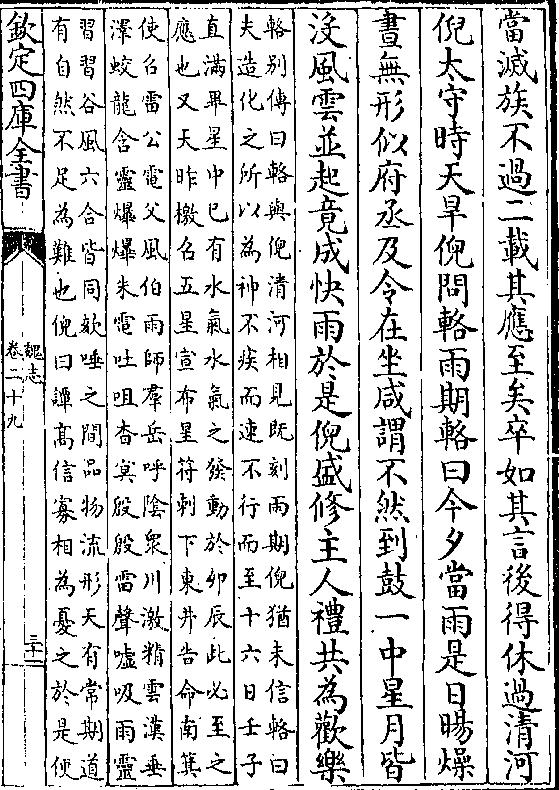 當滅族不過二載其應至矣卒如其言後得休過清河
倪太守時天旱倪問輅雨期輅曰今夕當雨是日暘燥
晝無形似府丞及令在坐咸謂不然到鼓一中星月皆
没風雲並起竟成快雨於是倪盛修主人禮共為歡樂
輅别傳曰輅與倪清河相見既刻雨期倪猶未信輅曰
夫造化之所以為神不疾而速不行而至十六日壬子
直滿畢星中已有水氣水氣之發動於卯辰此必至之
應也又天昨檄召五星宣布星符刺下東井告命南箕
使召雷公電父風伯雨師羣岳呼陰衆川激精雲漢垂
澤蛟龍含靈爆爆朱電吐咀杳㝠殷殷雷聲噓吸雨靈
習習谷風六合皆同欬唾之間品物流形天有常期道
有自然不足為難也倪曰譚髙信寡相為憂之於是便
欽定四庫全書
魏志
卷二十九
三十二